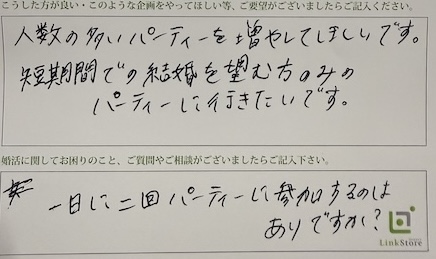 こうした方が良い・このような企画をやってほしい等、ご要望がございましたらご記入ください。
人数の多いパーティーを増やしてほしいです。
短期間での結婚を望む方のみの
パーティーに行きたいです。
婚活に関してお困りのこと、ご質問やご相談がございましたらご記入下さい。
一日に二回パーティーに参加するのは
ありですか?
LinkStore